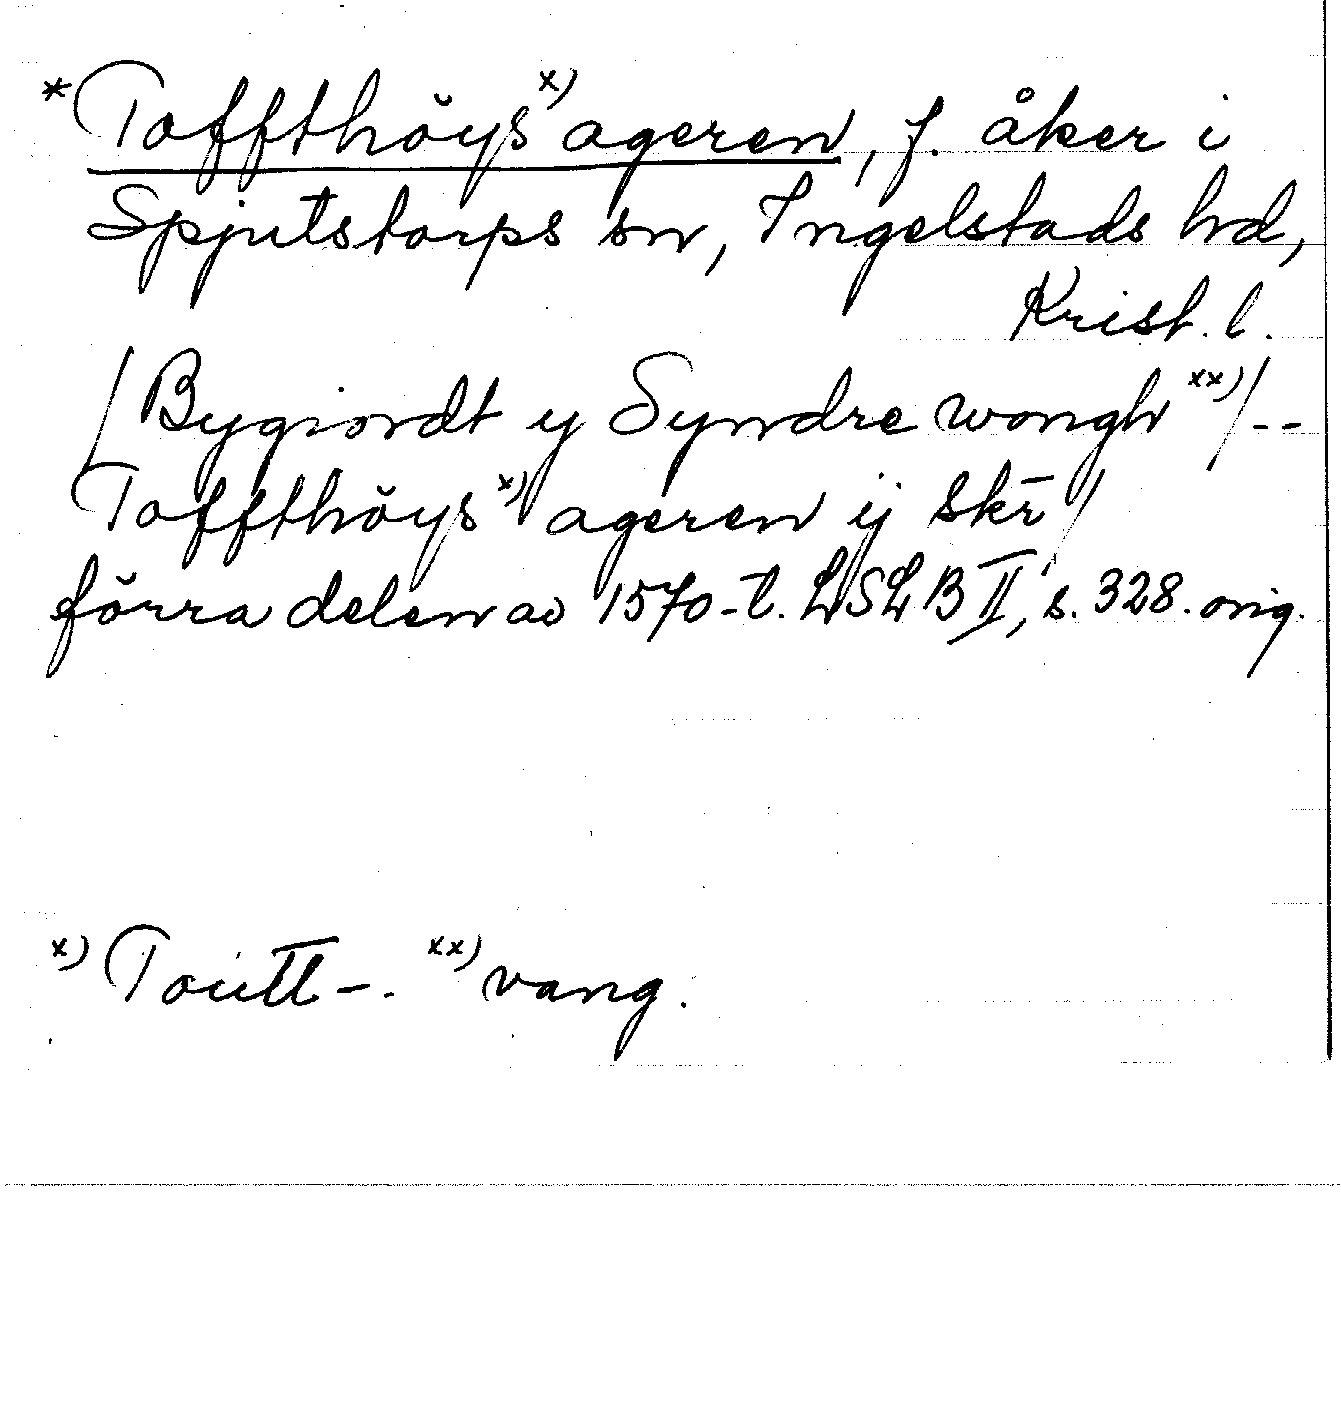 *Toffthöys x) ageren, f. åker i
Spjutstorps sn, Ingelstads hd,
Krist. l.
/Bygiordt y Syndre wongh xx)/--
Toffthöys x) ageren ij skr̄/
förra delen av 1570-t. LSLB II, s. 328. orig.
x) Toutt-. xx) vang.